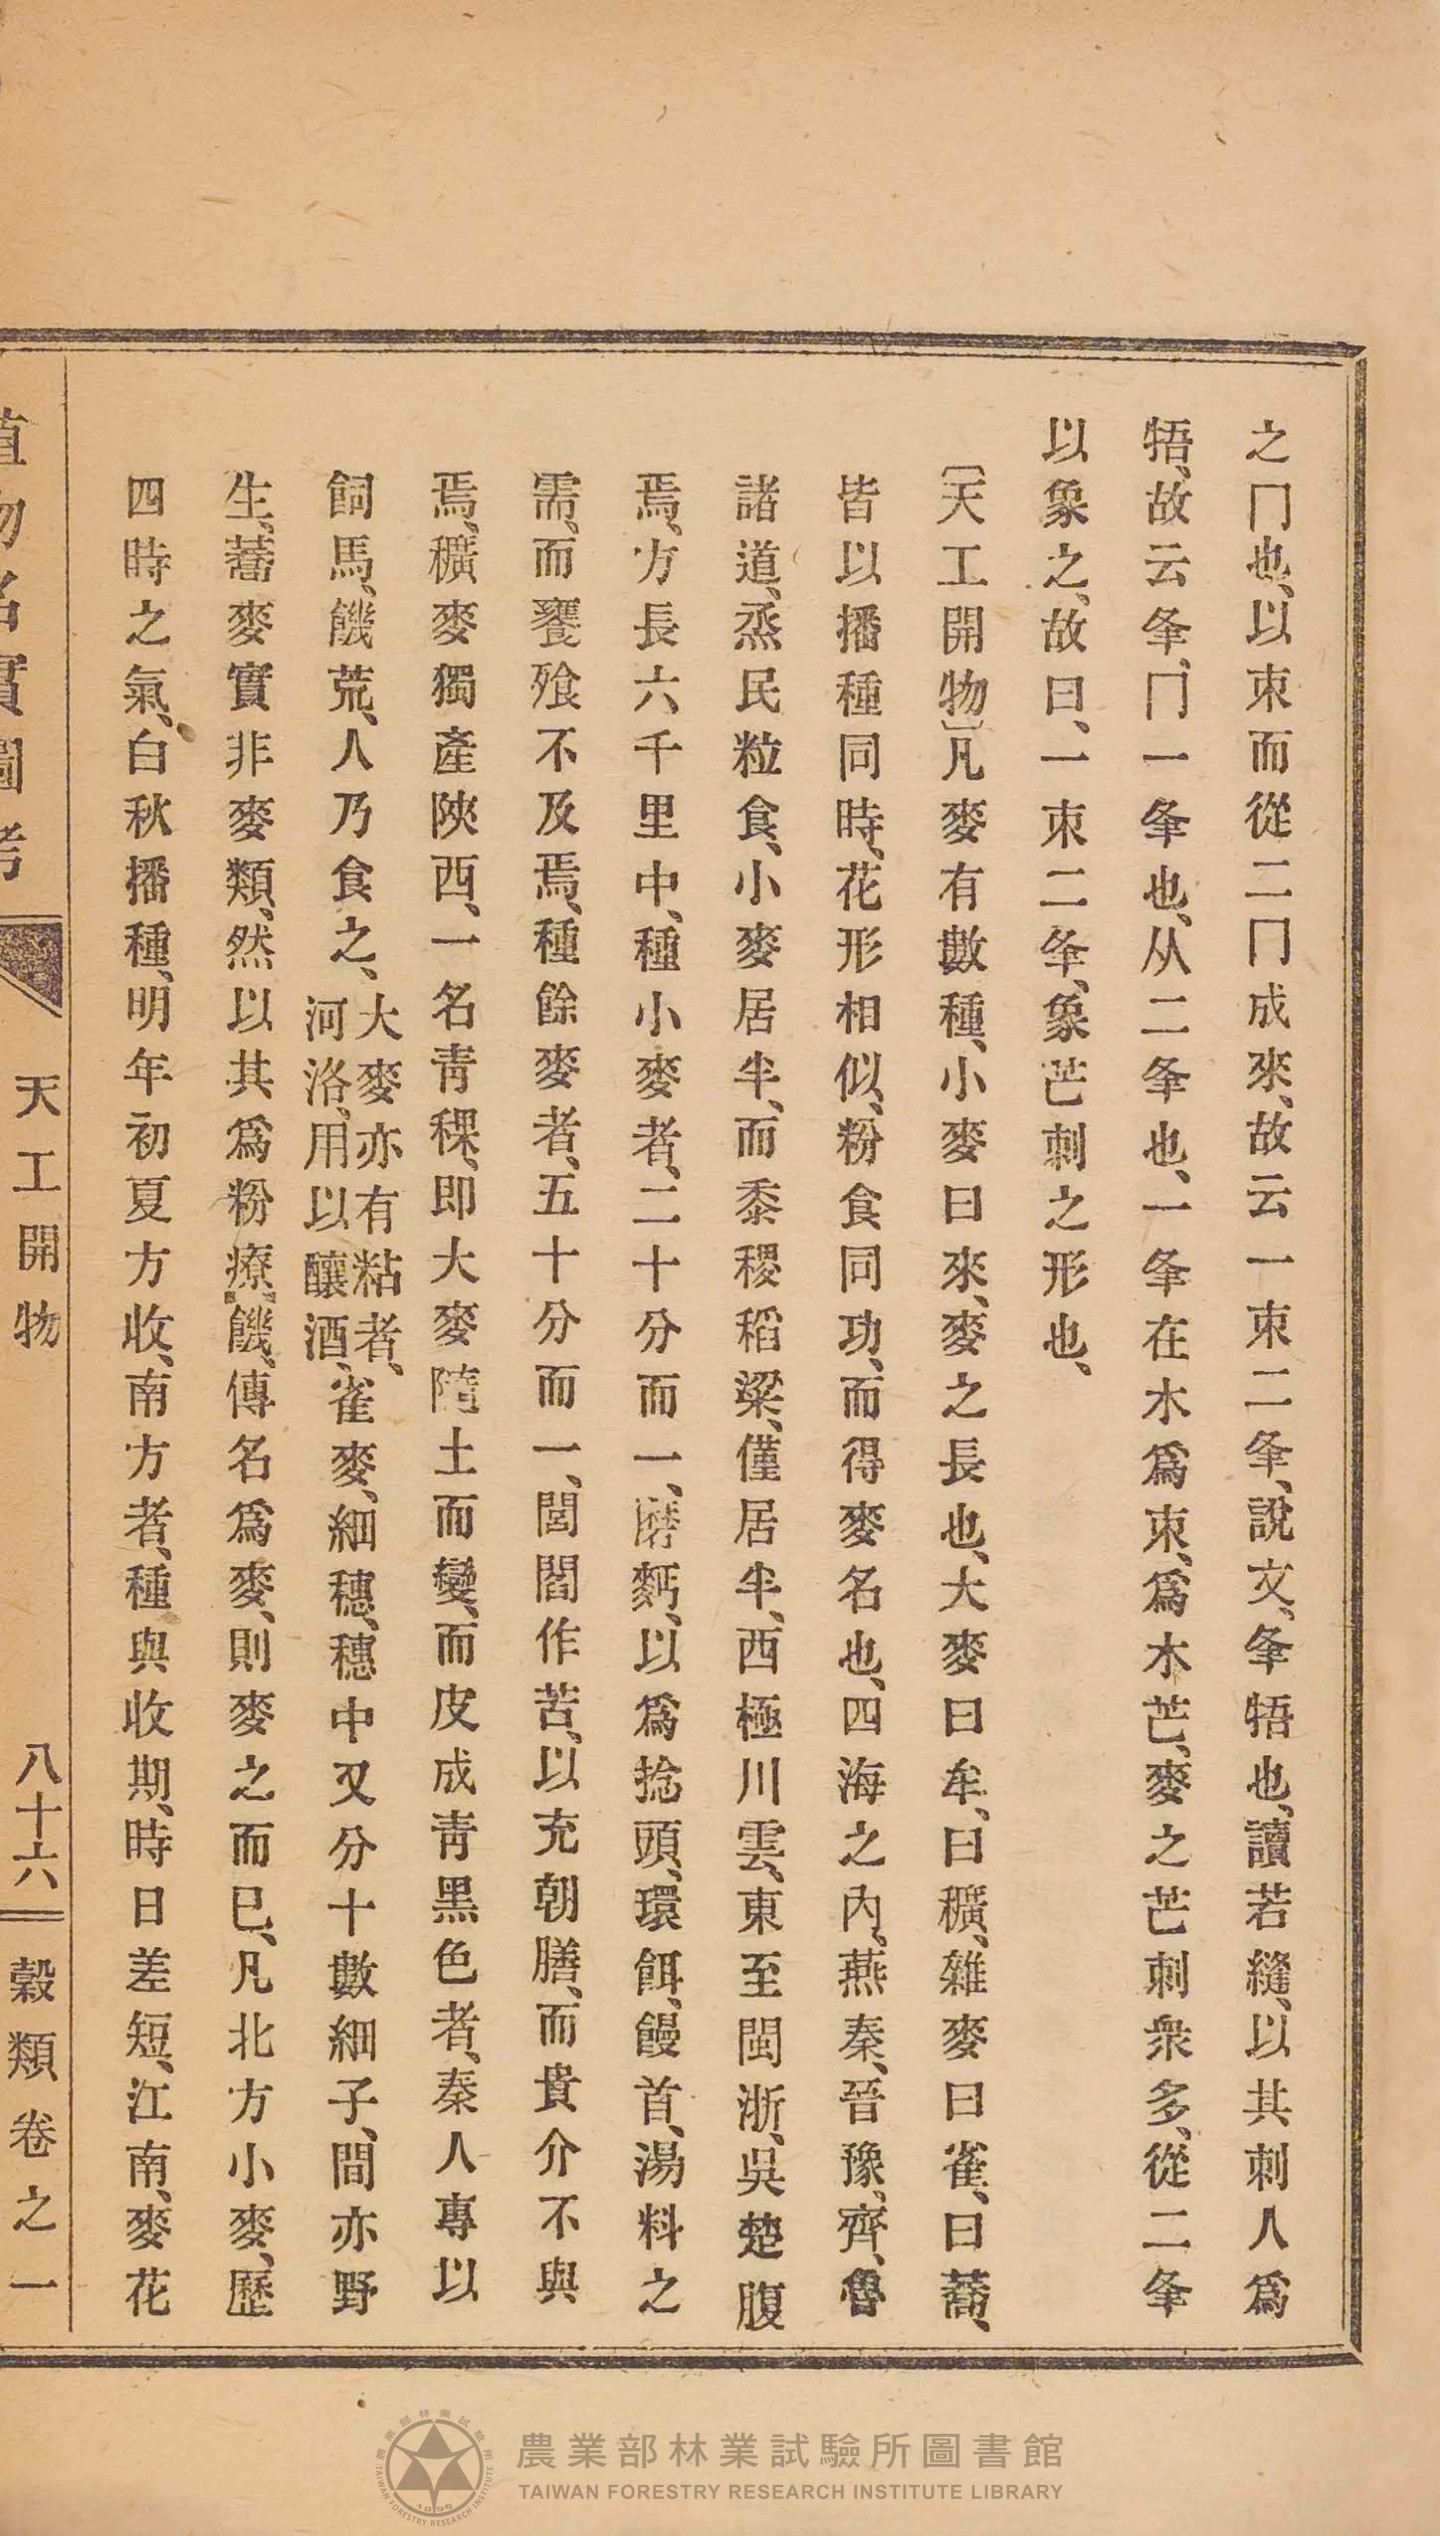 之冂也、以朿而從二冂成來、故云一朿二夆、說文、夆牾也、讀若縫、以其刺人爲
牾、故云夆、冂一夆也、从二夆也、一夆在木爲朿、爲木芒、麥之芒刺衆多、從二夆
以象之、故曰、一朿二夆、象芒刺之形也、
〔天工開物〕凡麥有數種、小麥曰來、麥之長也、大麥曰牟、曰穬、雜麥曰雀、曰蕎、
皆以播種同時、花形相似、粉食同功、而得麥名也、四海之內、燕秦、晉豫、齊、魯
諸道、烝民粒食、小麥居半、而黍稷稻粱、僅居半、西極川雲、東至閩浙、吳楚腹
焉、方長六千里中、種小麥者、二十分而一、磨麪、以爲捻頭、環餌、饅首、湯料之
需、而饔飱不及焉、種餘麥者、五十分而一、閭閻作苦、以充朝膳、而貴介不與
焉、穬麥獨產陝西、一名青稞、即大麥隨土而變、而皮成青黑色者、秦人專以
飼馬、饑荒、人乃食之、大麥亦有粘者、河洛、用以釀酒、雀麥、細穗、穗中又分十數細子、間亦野
生、蕎麥實非麥類、然以其爲粉療饑、傳名爲麥、則麥之而已、凡北方小麥、歷
四時之氣、自秋播種、明年初夏方收、南方者、種與收期、時日差短、江南、麥花
植物名實圖考 天工開物 八十六 穀類卷之一
農業部林業試驗所圖書館
TAIWAN FORESTRY RESEARCH INSTITUTE LIBRARY
農業部林業試驗所
TAIWAN FORESTRY RESEARCH INSTITUTE
1895